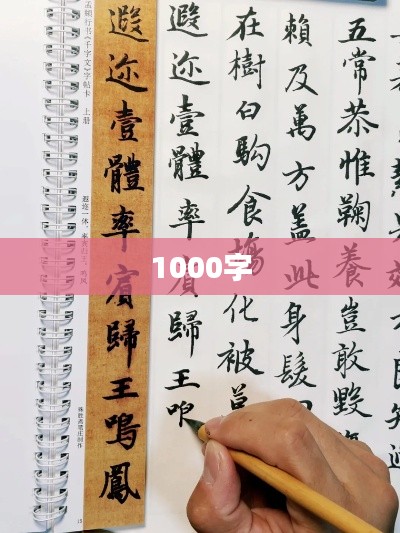 五常恭惟鞠養豈敢毀
賴及萬方蓋此身髮
在樹白駒食場化被
遐迩壹體率賓歸王
遐迩壹體率賓歸王鳴鳳
孟頫行书《千字文》字帖卡 上册
遐迩一体，率宾归王。鸣凤
1000字